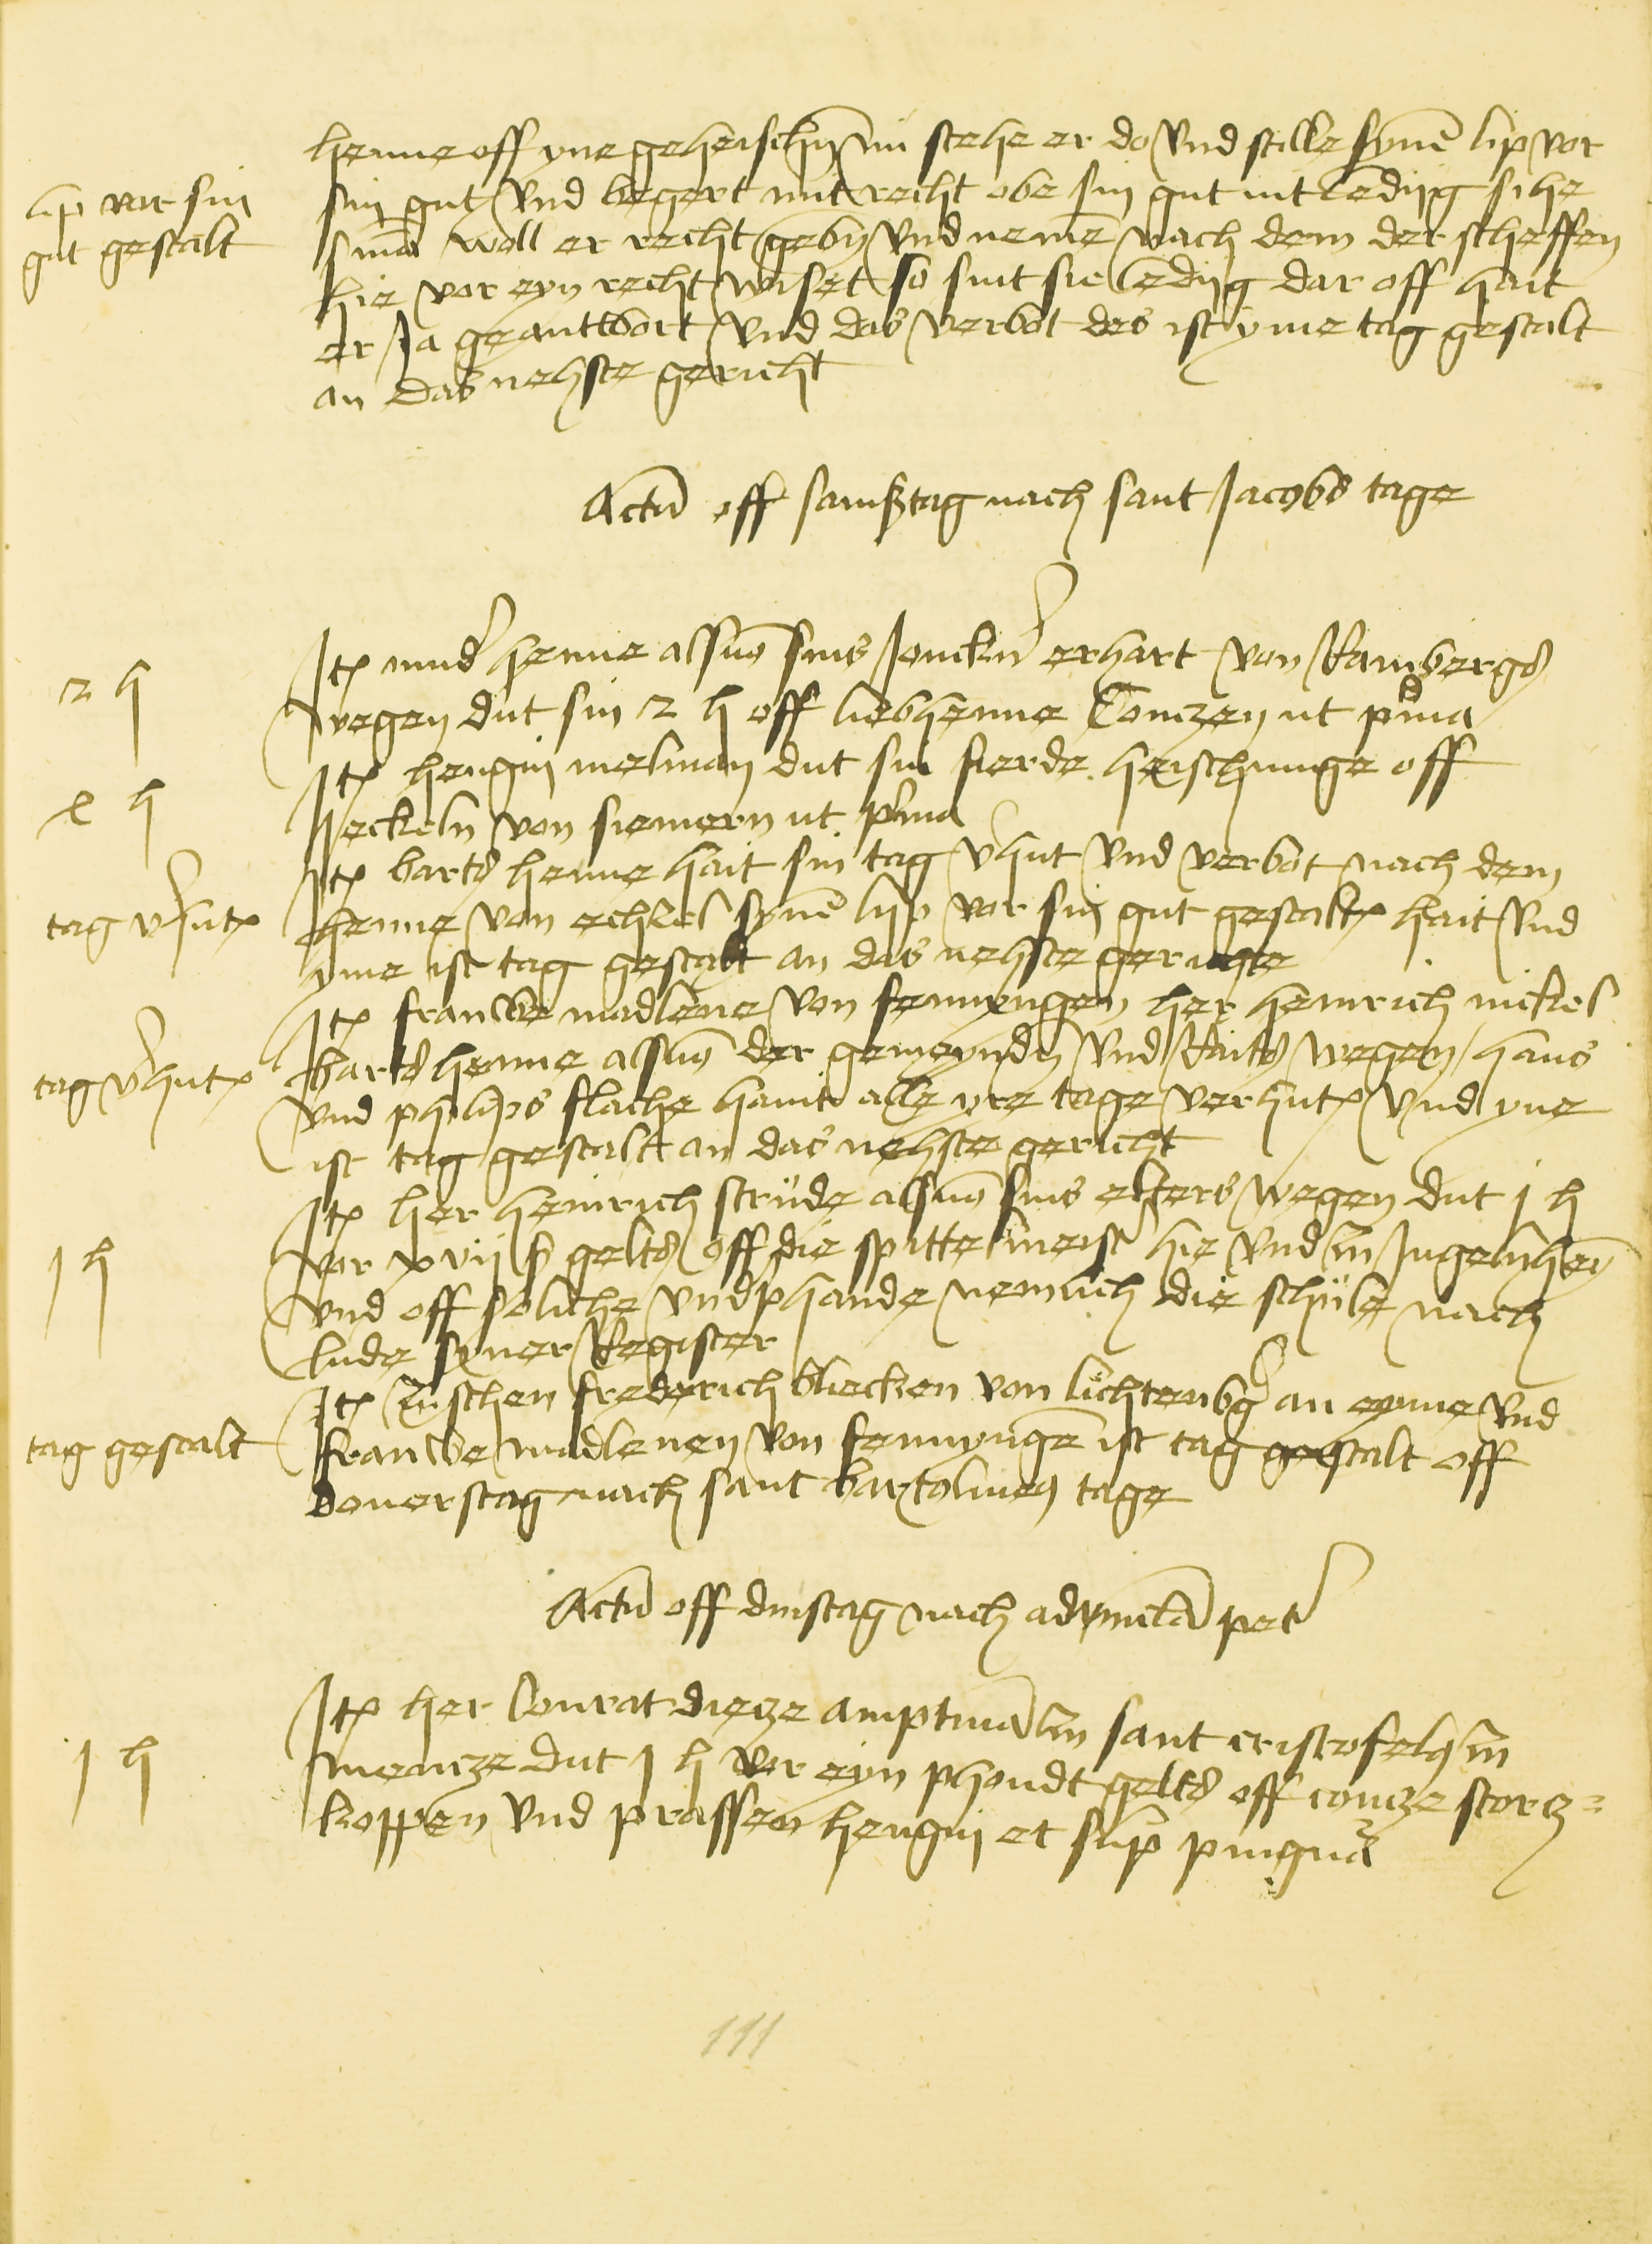 henne off yne geheischñ nu stehe er do vnd stelle synē lip vor
lip vor sin
gut gestalt
sin gut vnd begert mit recht obe sin gut nit ledijg sihe
woll er recht gebñ vnd nemē nach dem der scheffen
hie vor eyn recht wiset so sint sie ledijg dar off hait
er Ja geantwort vnd das verbot des ist yme tag gestalt
an das nehste gericht
Actū off samßtag nach sant Jacobs tage
2 h
Itē henne als von sins Jonckhñ erhart von Ramberg
wegen dut sin 2 h off liebhenne Conczen ut pma
4 h
Itē hengin melman dut sin fierde heischunge off
Jeckeln von siemern ut pma
tag vhut
Itē hartß henne hait sin tag vhut vnd verbot nach dem
henne von echzel synē lijp vor sin gut gestalt hait vnd
yme ist tag gestalt an das nehste gerichte
tag vhut
Itē frauwe madlene von fennyngen her heinrich nickel
hartß henne als von der gemeynden vnd Raits wegen hans
vnd philips flache haint alle yre tage verhut vnd yne
ist tag gestalt an das nehste gericht
1 h
Itē her heinrich strüde als von sins alters wegen dut 1 h
vor xvij ß gelts off die spittelmeist hie vnd In Ingelnheī
vnd off soliche vndphande nemlich die schule nach
lude syner Register
tag gestalt
Itē Zuschen frederich blicken von liechtenbg an eynne vnd
frauwe madlenen von fennyngē ist tag gestalt off
donerstag nach sant bartolmeꝰ tage
Actū off dinstag nach advincla pet
1 h
Itē her Conrat dieze amptmā In sant cristofels In
mencze dut 1 h vor eyn phondt gelts off concze storcz=
koppen vnd prassen hengin et sup pingnā
111